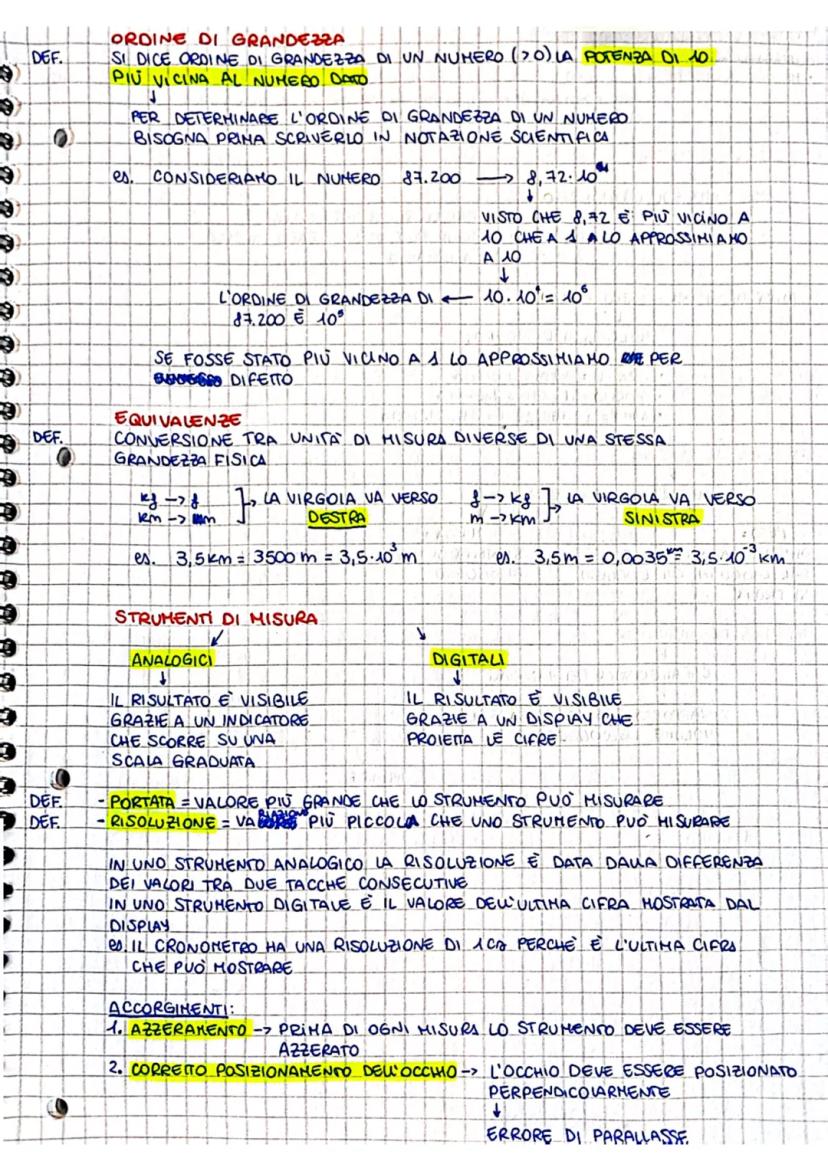 ORDINE DI GRANDEZZA
DEF. SI DICE ORDINE DI GRANDEZZA DI UN NUMERO (>0) LA POTENZA DI 10
PIÙ VICINA AL NUMERO DATO
↓
PER DETERMINARE L'ORDINE DI GRANDEZZA DI UN NUMERO
BISOGNA PRIMA SCRIVERLO IN NOTAZIONE SCIENTIFICA
es. CONSIDERIAMO IL NUMERO 87.200 → 8,72·10⁴
↓
VISTO CHE 8,72 È PIÙ VICINO A
10 CHE A 1 A LO APPROSSIMIAMO
A 10
↓
L'ORDINE DI GRANDEZZA DI ← 10·10⁴ = 10⁵
87.200 È 10⁵
SE FOSSE STATO PIÙ VICINO A 1 LO APPROSSIMIAMO PER
DIFETTO
EQUIVALENZE
DEF. CONVERSIONE TRA UNITÀ DI MISURA DIVERSE DI UNA STESSA
GRANDEZZA FISICA
kg → g
km → m
LA VIRGOLA VA VERSO
DESTRA
g → kg
m → km
LA VIRGOLA VA VERSO
SINISTRA
es. 3,5 km = 3500 m = 3,5·10³ m
es. 3,5 m = 0,0035 km = 3,5·10⁻³ km
STRUMENTI DI MISURA
ANALOGICI
↓
IL RISULTATO È VISIBILE
GRAZIE A UN INDICATORE
CHE SCORRE SU UNA
SCALA GRADUATA
DIGITALI
↓
IL RISULTATO È VISIBILE
GRAZIE A UN DISPLAY CHE
PROIETTA LE CIFRE
DEF. - PORTATA = VALORE PIÙ GRANDE CHE LO STRUMENTO PUÒ MISURARE
DEF. - RISOLUZIONE = VARIAZIONE PIÙ PICCOLA CHE UNO STRUMENTO PUÒ MISURARE
IN UNO STRUMENTO ANALOGICO LA RISOLUZIONE È DATA DALLA DIFFERENZA
DEI VALORI TRA DUE TACCHE CONSECUTIVE
IN UNO STRUMENTO DIGITALE È IL VALORE DELL'ULTIMA CIFRA MOSTRATA DAL
DISPLAY
es. IL CRONOMETRO HA UNA RISOLUZIONE DI 1 PERCHÈ È L'ULTIMA CIFRA
CHE PUÒ MOSTRARE
ACCORGIMENTI:
1. AZZERAMENTO → PRIMA DI OGNI MISURA LO STRUMENTO DEVE ESSERE
AZZERATO
2. CORRETTO POSIZIONAMENTO DELL'OCCHIO → L'OCCHIO DEVE ESSERE POSIZIONATO
PERPENDICOLARMENTE
↓
ERRORE DI PARALLASSE